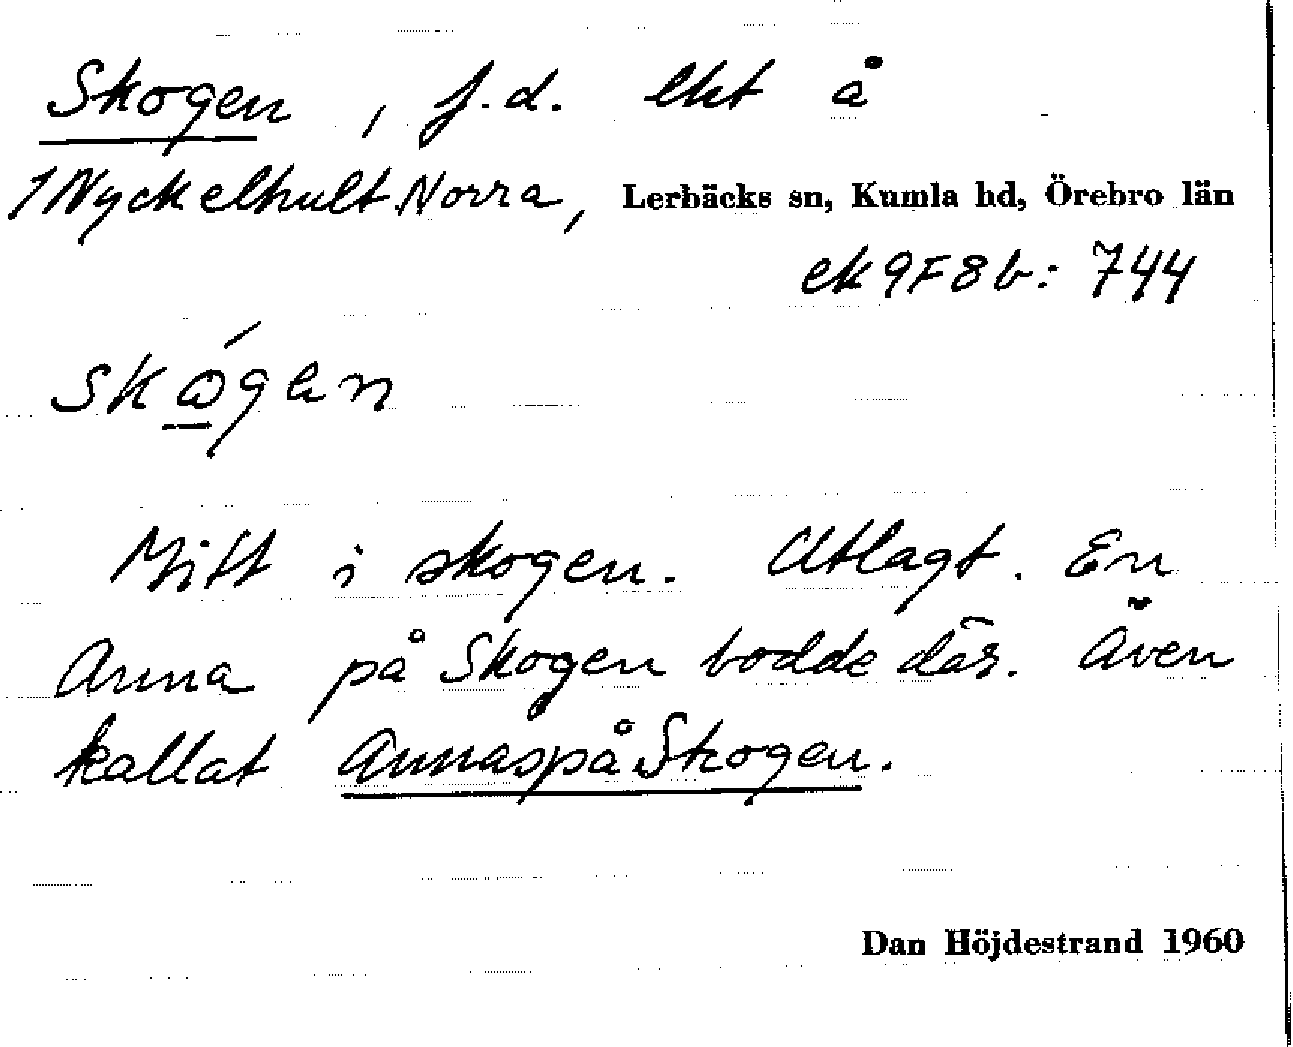 Skogen, f.d. lht å
1 Nyckelhult Norra, Lerbäcks sn, Kumla hd, Örebro län
ek 9F8b: 744
skógen
Mitt i skogen. Utlagt. En
Anna på Skogen bodde där. Även
kallat Annas på Skogen.
Dan Höjdestrand 1960